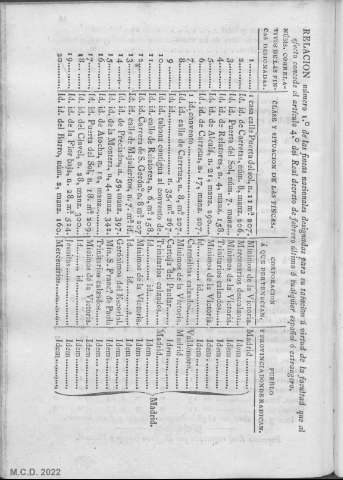 RELACION número 1.º de las fincas nacionales designadas para su tasacion á virtud de la facultad que al
efecto concede el artículo 4.º del Real decreto de febrero último á cualquier español ó estrangero.
NÚMS. CORRELATIVOS DE LAS FINCAS DESIGNADAS.
CLASE Y SITUACION DE LAS FINCAS.
CORPORACION Á QUE PERTENECIAN.
PUEBLO Y PROVINCIA DONDE RADICAN.
1 casa calle Puerta del sol, n. 11 mª 207. Mínimos de la Victoria. Madrid
2 Id. id. de Carretas, núm. 8, manz. 206. Mercenarios descalzos. Idem
3 Id. id. Puerta del Sol, núm. 7, manz. Mínimos de la Victoria. Idem
4 Id. id. de Relatores, n. 4, manz. 158. Trinitarios calzados. Idem
5 Id. id. de Atocha, n. 21, manz. 156. Id. id. Idem
6 Id. id. de Carretas, n. 17, manz. 207. Mínimos de la Victoria. Idem
7 1 id. convento Carmelitas calzad. Valdemoro
8 Id. id. calle de Carretas, n. 8, mª 207. Mínimos de la Victoria. Madrid
9 Id. id. n. 35, mª 267. Cartuja del Paular. Idem
10 Id. id. tahona contigua al convento de Trinitarios calzados. Madrid
11 Id. id. de Relatores, n. 6, mª 158. Id. id. Idem
12 Id. id. Carrera de S. Gerón.º n. 8 mª 207 Mínimos de la Victoria. Idem
13 1 id. calle de Majaderitos, n. 7, mª id. Id. id. Idem
14 Id. id. de Preciados, n. 29, manz. 397. Gerónimos del Escorial. Idem
15 Id. id. de la Montera, n. 4, manz. 342. Mín. S. Franc.º de Paul. Idem
16 Id. id. de Atocha, n. 19, manz. Trinitarios calzados. Idem
17 Id. id. Puerta del Sol, n. 18, mª 205. Mínimos de la Victoria. Idem
18 Id. id. de Clavel, n. 28, manz. 300. Id. id. Idem
19 Id. id. de la Flor baja, n. 26, mª 524. Jesuitas Idem
20 Id. id. del Barco, núm. 2, manz. Mercenarios Idem
Madrid.
M.C.D. 2022